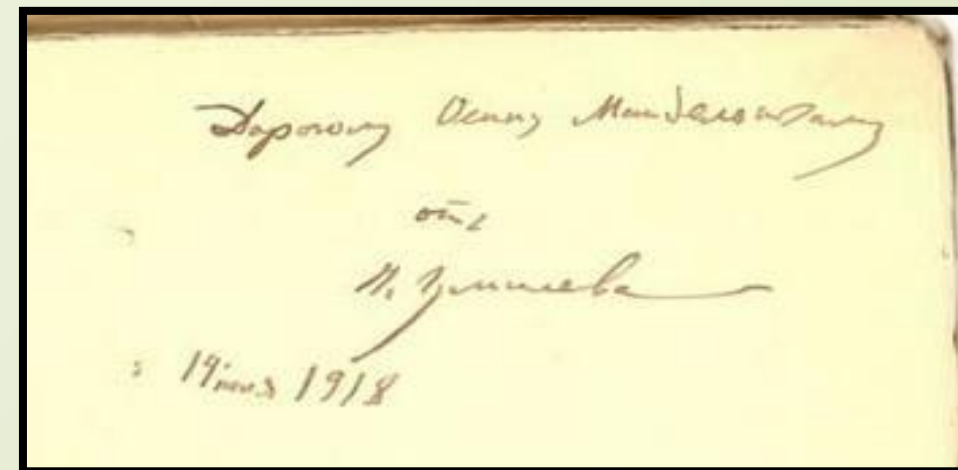 Дорогому Осипу Мандельштаму
отъ
Н. Гумилева
19 1918